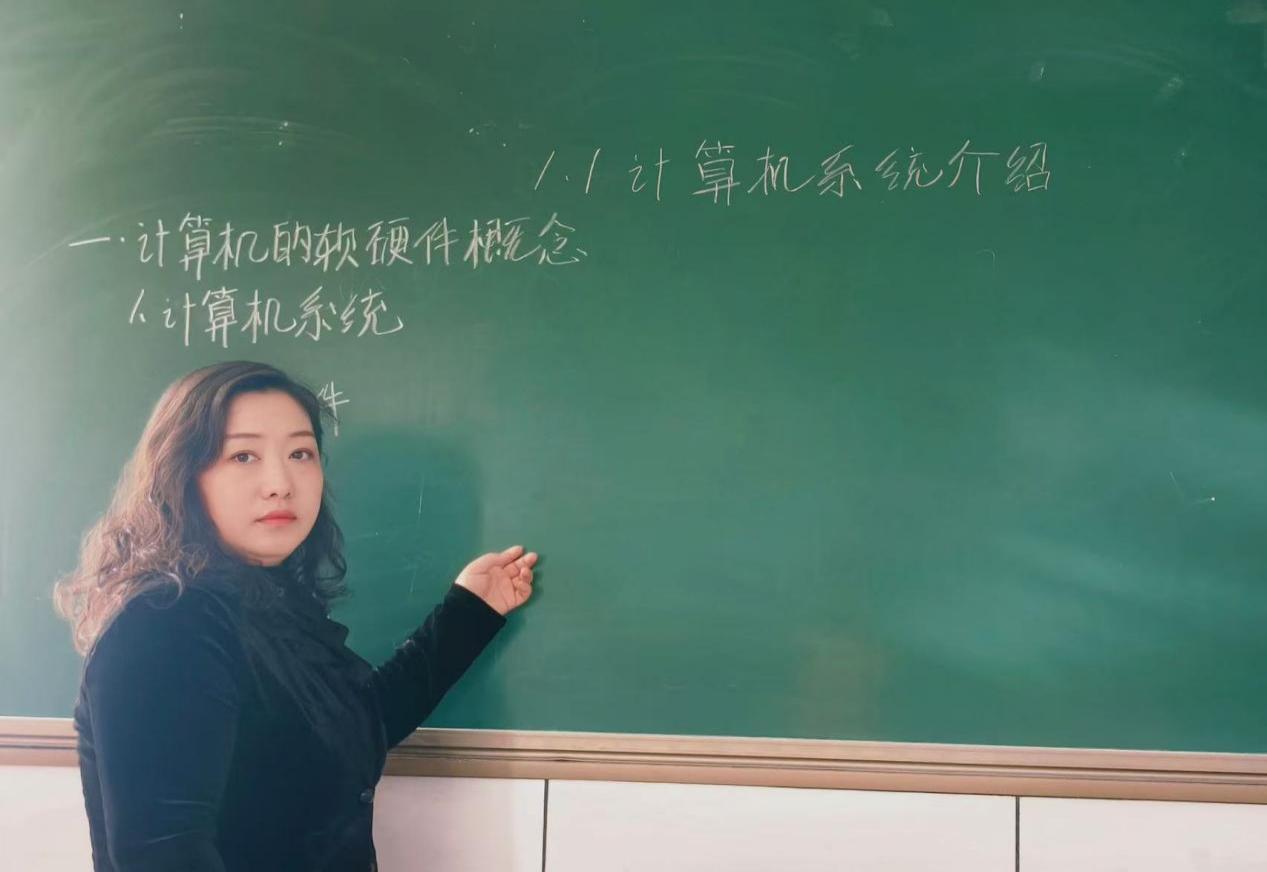 1.1 计算机系统介绍
一.计算机的软硬件概念
1.计算机系统
件